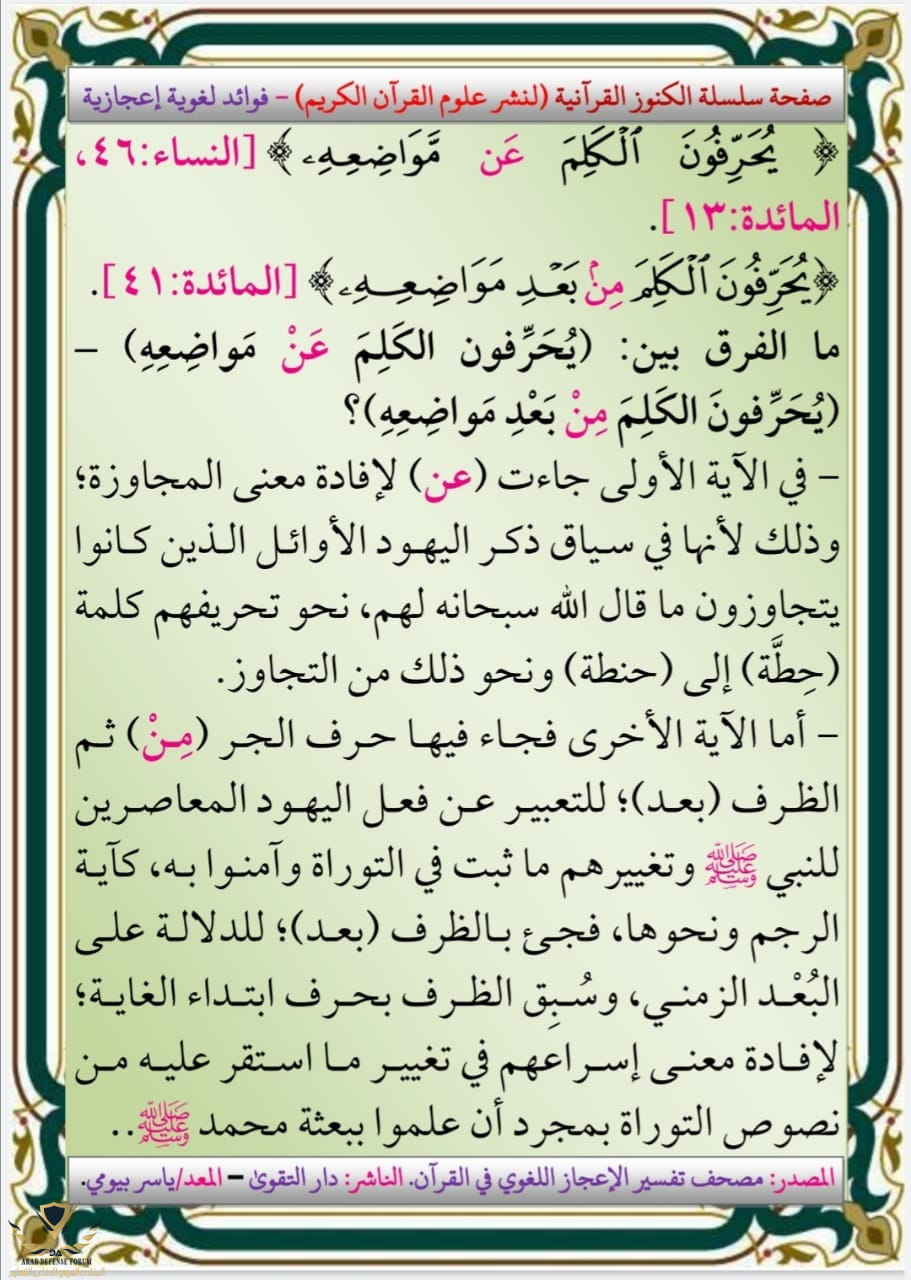 صفحة سلسلة الكنوز القرآنية (لنشر علوم القرآن الكريم) – فوائد لغوية إعجازية
﴿ يُحَرِّفُونَ ٱلْكَلِمَ عَن مَّوَاضِعِهِۦ ﴾ [النساء:٤٦،
المائدة:١٣].
﴿يُحَرِّفُونَ ٱلْكَلِمَ مِنۢ بَعْدِ مَوَاضِعِهِۦ﴾ [المائدة:٤١].
ما الفرق بين: (يُحَرِّفون الكَلِمَ عَنْ مَواضِعِهِ) –
(يُحَرِّفونَ الكَلِمَ مِنْ بَعْدِ مَواضِعِهِ)؟
– في الآية الأولى جاءت (عن) لإفادة معنى المجاوزة؛
وذلك لأنها في سياق ذكر اليهود الأوائل الذين كانوا
يتجاوزون ما قال الله سبحانه لهم، نحو تحريفهم كلمة
(حِطَّة) إلى (حنطة) ونحو ذلك من التجاوز.
– أما الآية الأخرى فجاء فيها حرف الجر (مِنْ) ثم
الظرف (بعد)؛ للتعبير عن فعل اليهود المعاصرين
للنبي ﷺ وتغييرهم ما ثبت في التوراة وآمنوا به، كآية
الرجم ونحوها، فجئ بالظرف (بعد)؛ للدلالة على
البُعْد الزمني، وسُبِق الظرف بحرف ابتداء الغاية؛
لإفادة معنى إسراعهم في تغيير ما استقر عليه من
نصوص التوراة بمجرد أن علموا ببعثة محمد ﷺ..
المصدر: مصحف تفسير الإعجاز اللغوي في القرآن. الناشر: دار التقوىٰ – المعد/ياسر بيومي.
DA
ARAB DEFENSE FORUM